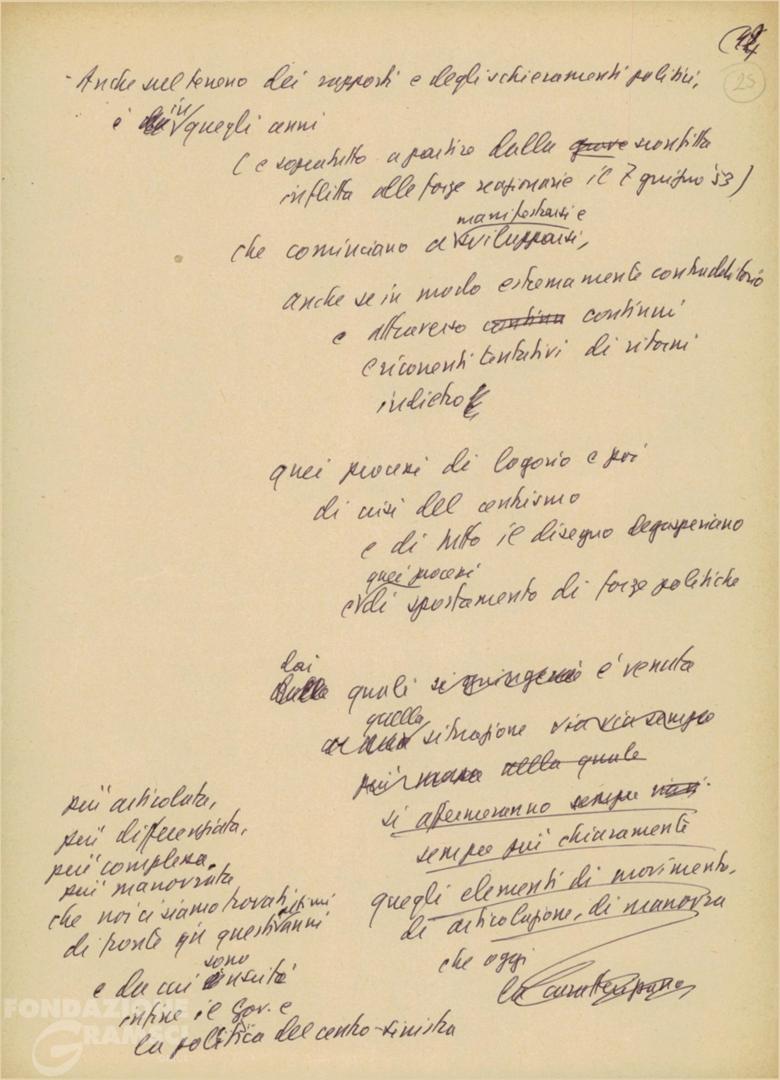 25
- Anche sul terreno dei rapporti e degli schieramenti politici,
è in quegli anni
(e soprattutto a partire dalla grave sconfitta
inflitta alle forze reazionarie il 7 giugno '53)
manifestarsi e
che cominciano a svilupparsi,
anche se in modo estremamente contraddittorio
e attraverso continui
e ricorrenti tentativi di ritorni
indietro
quei processi di logorio e poi
di crisi del centrismo
e di tutto il disegno degasperiano
quei processi
e di spostamento di forze politiche
dai
quali è venuta
quella
situazione via via sempre
più nella quale
si affermeranno sempre
sempre più chiaramente
quegli elementi di movimento,
di articolazione, di manovra
che oggi
più articolata,
più differenziata,
più complessa,
più manovrata
che noi ci siamo trovati
di fronte in questi ultimi anni
sono
e da cui
infine il gov. e
la politica del centro-sinistra
FONDAZIONE
GRAMSCI